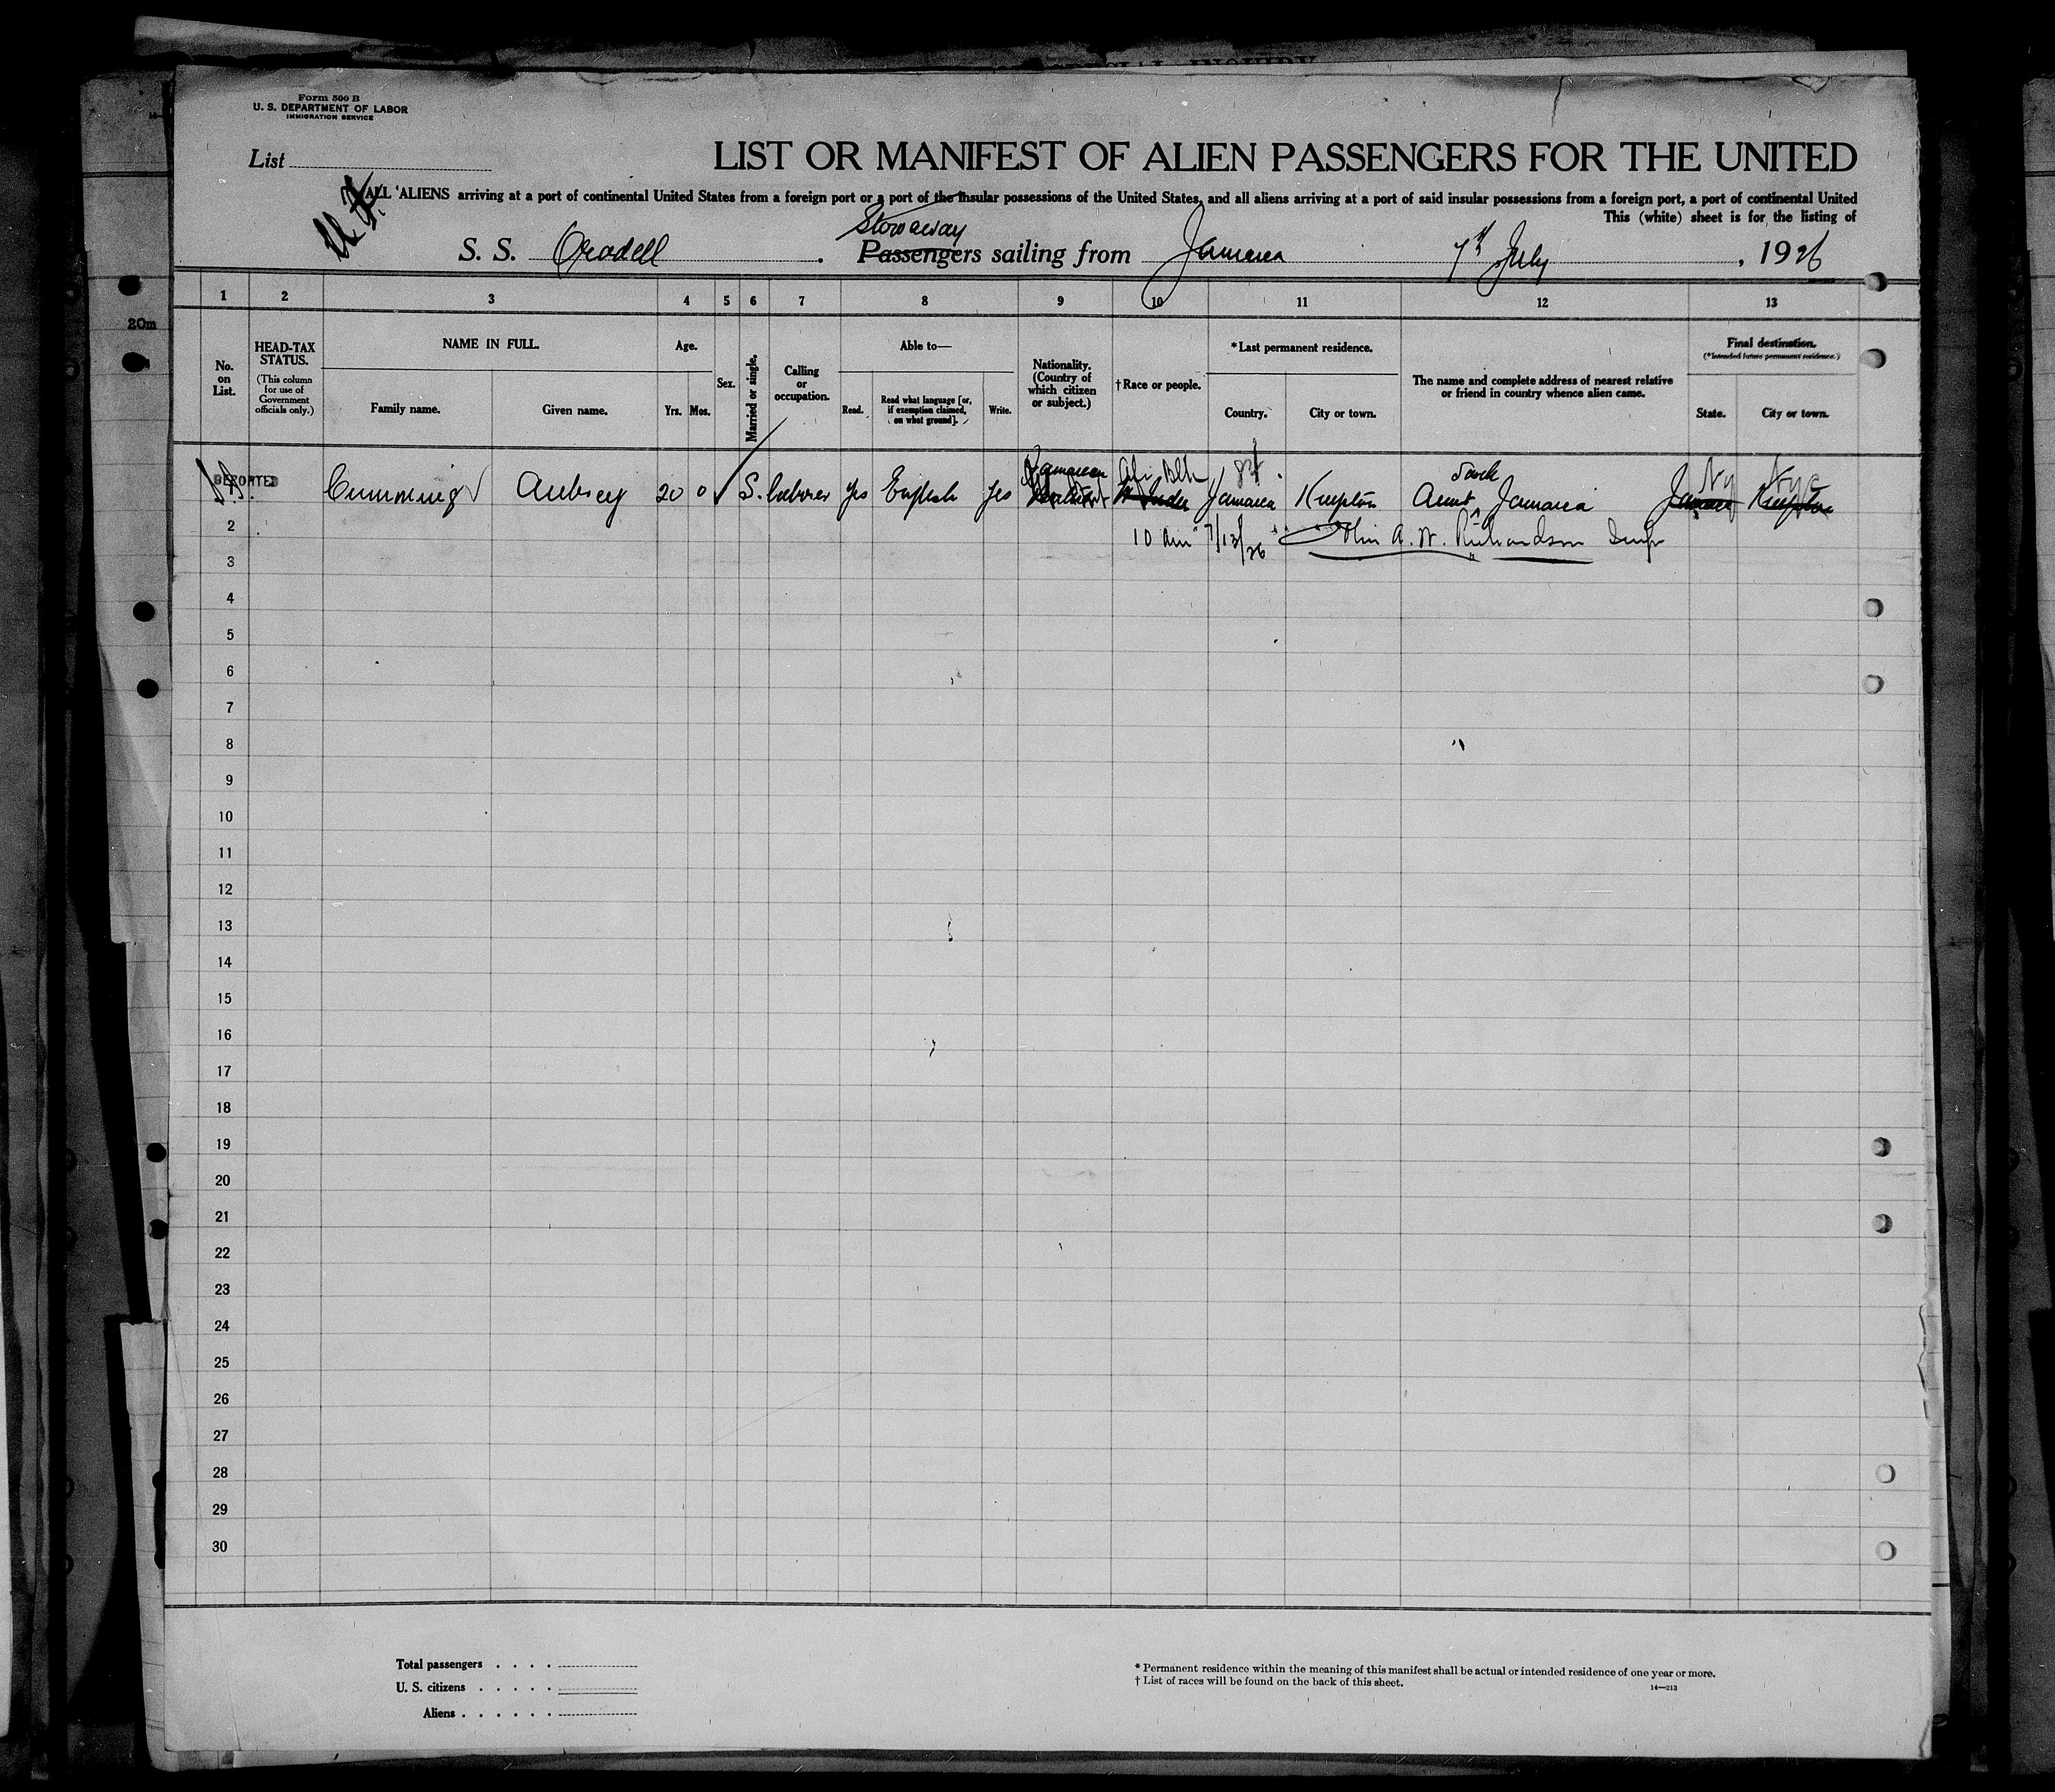 SPECIAL INQUIRY
Form 500 B
U. S. DEPARTMENT OF LABOR
IMMIGRATION SERVICE
List
LIST OR MANIFEST OF ALIEN PASSENGERS FOR THE UNITED
ALL ALIENS arriving at a port of continental United States from a foreign port or a port of the insular possessions of the United States, and all aliens arriving at a port of said insular possessions from a foreign port, a port of continental United
This (white) sheet is for the listing of
Stowaway
S. S. Oradell . Passengers sailing from Jamaica 7th July , 1926
1 2 3 4 5 6 7 8 9 10 11 12 13
20m
No. on List.
HEAD-TAX STATUS.
(This column for use of Government officials only.)
NAME IN FULL.
Family name. Given name.
Age.
Yrs. Mos.
Sex.
Married or single.
Calling or occupation.
Able to—
Read. Read what language [or, if exemption claimed, on what ground]. Write.
Nationality. (Country of which citizen or subject.)
† Race or people.
* Last permanent residence.
Country. City or town.
The name and complete address of nearest relative or friend in country whence alien came.
Final destination.
(* Intended future permanent residence.)
State. City or town.
Jamaican Afr. Blk Ny Nyc
DEPORTED Cumming Aubrey 20 0 S. laborer yes English yes Jamaica Kingston Aunt Jamaica Jamaica Kingston
2 10 am 7/13/26 John A. W. Richardson Insp
3
4
5
6
7
8
9
10
11
12
13
14
15
16
17
18
19
20
21
22
23
24
25
26
27
28
29
30
Total passengers . . . .
U. S. citizens . . . . .
Aliens . . . . . .
* Permanent residence within the meaning of this manifest shall be actual or intended residence of one year or more.
† List of races will be found on the back of this sheet.
14—213